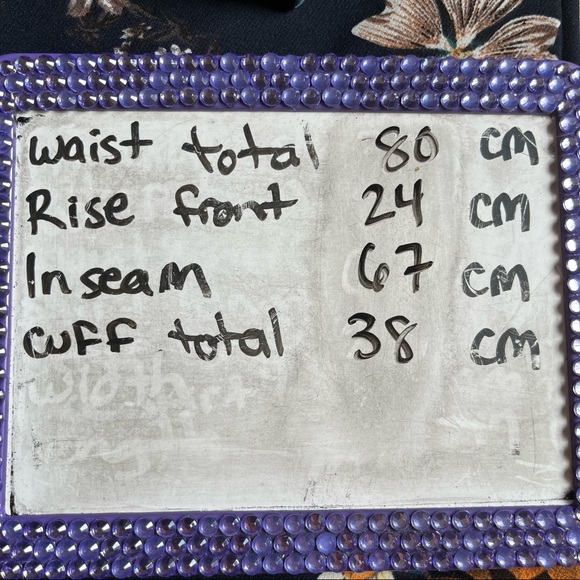 waist total 80 cm
Rise front 24 cm
Inseam 67 cm
cuff total 38 cm
width